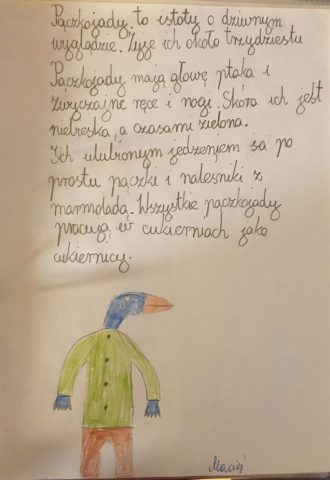 Pączkojady to istoty o dziwnym
wyglądzie. Żyje ich około trzydziestu
Pączkojady mają głowę ptaka i
zwyczajne ręce i nogi. Skóra ich jest
niebieska, a czasami zielona.
Ich ulubionym jedzeniem są po
prostu pączki i naleśniki z
marmoladą. Wszystkie pączkojady
pracują w cukierniach jako
cukiernicy.
Maciej